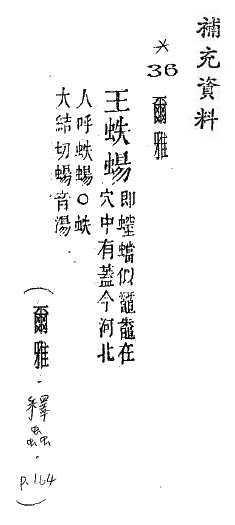 補充資料
*
36
爾雅
王蛈蝪即螲蟷似鼅鼄在
穴中有蓋今河北
人呼蛈蝪○蛈
大結切蝪音湯
(爾雅·釋蟲·p.164)